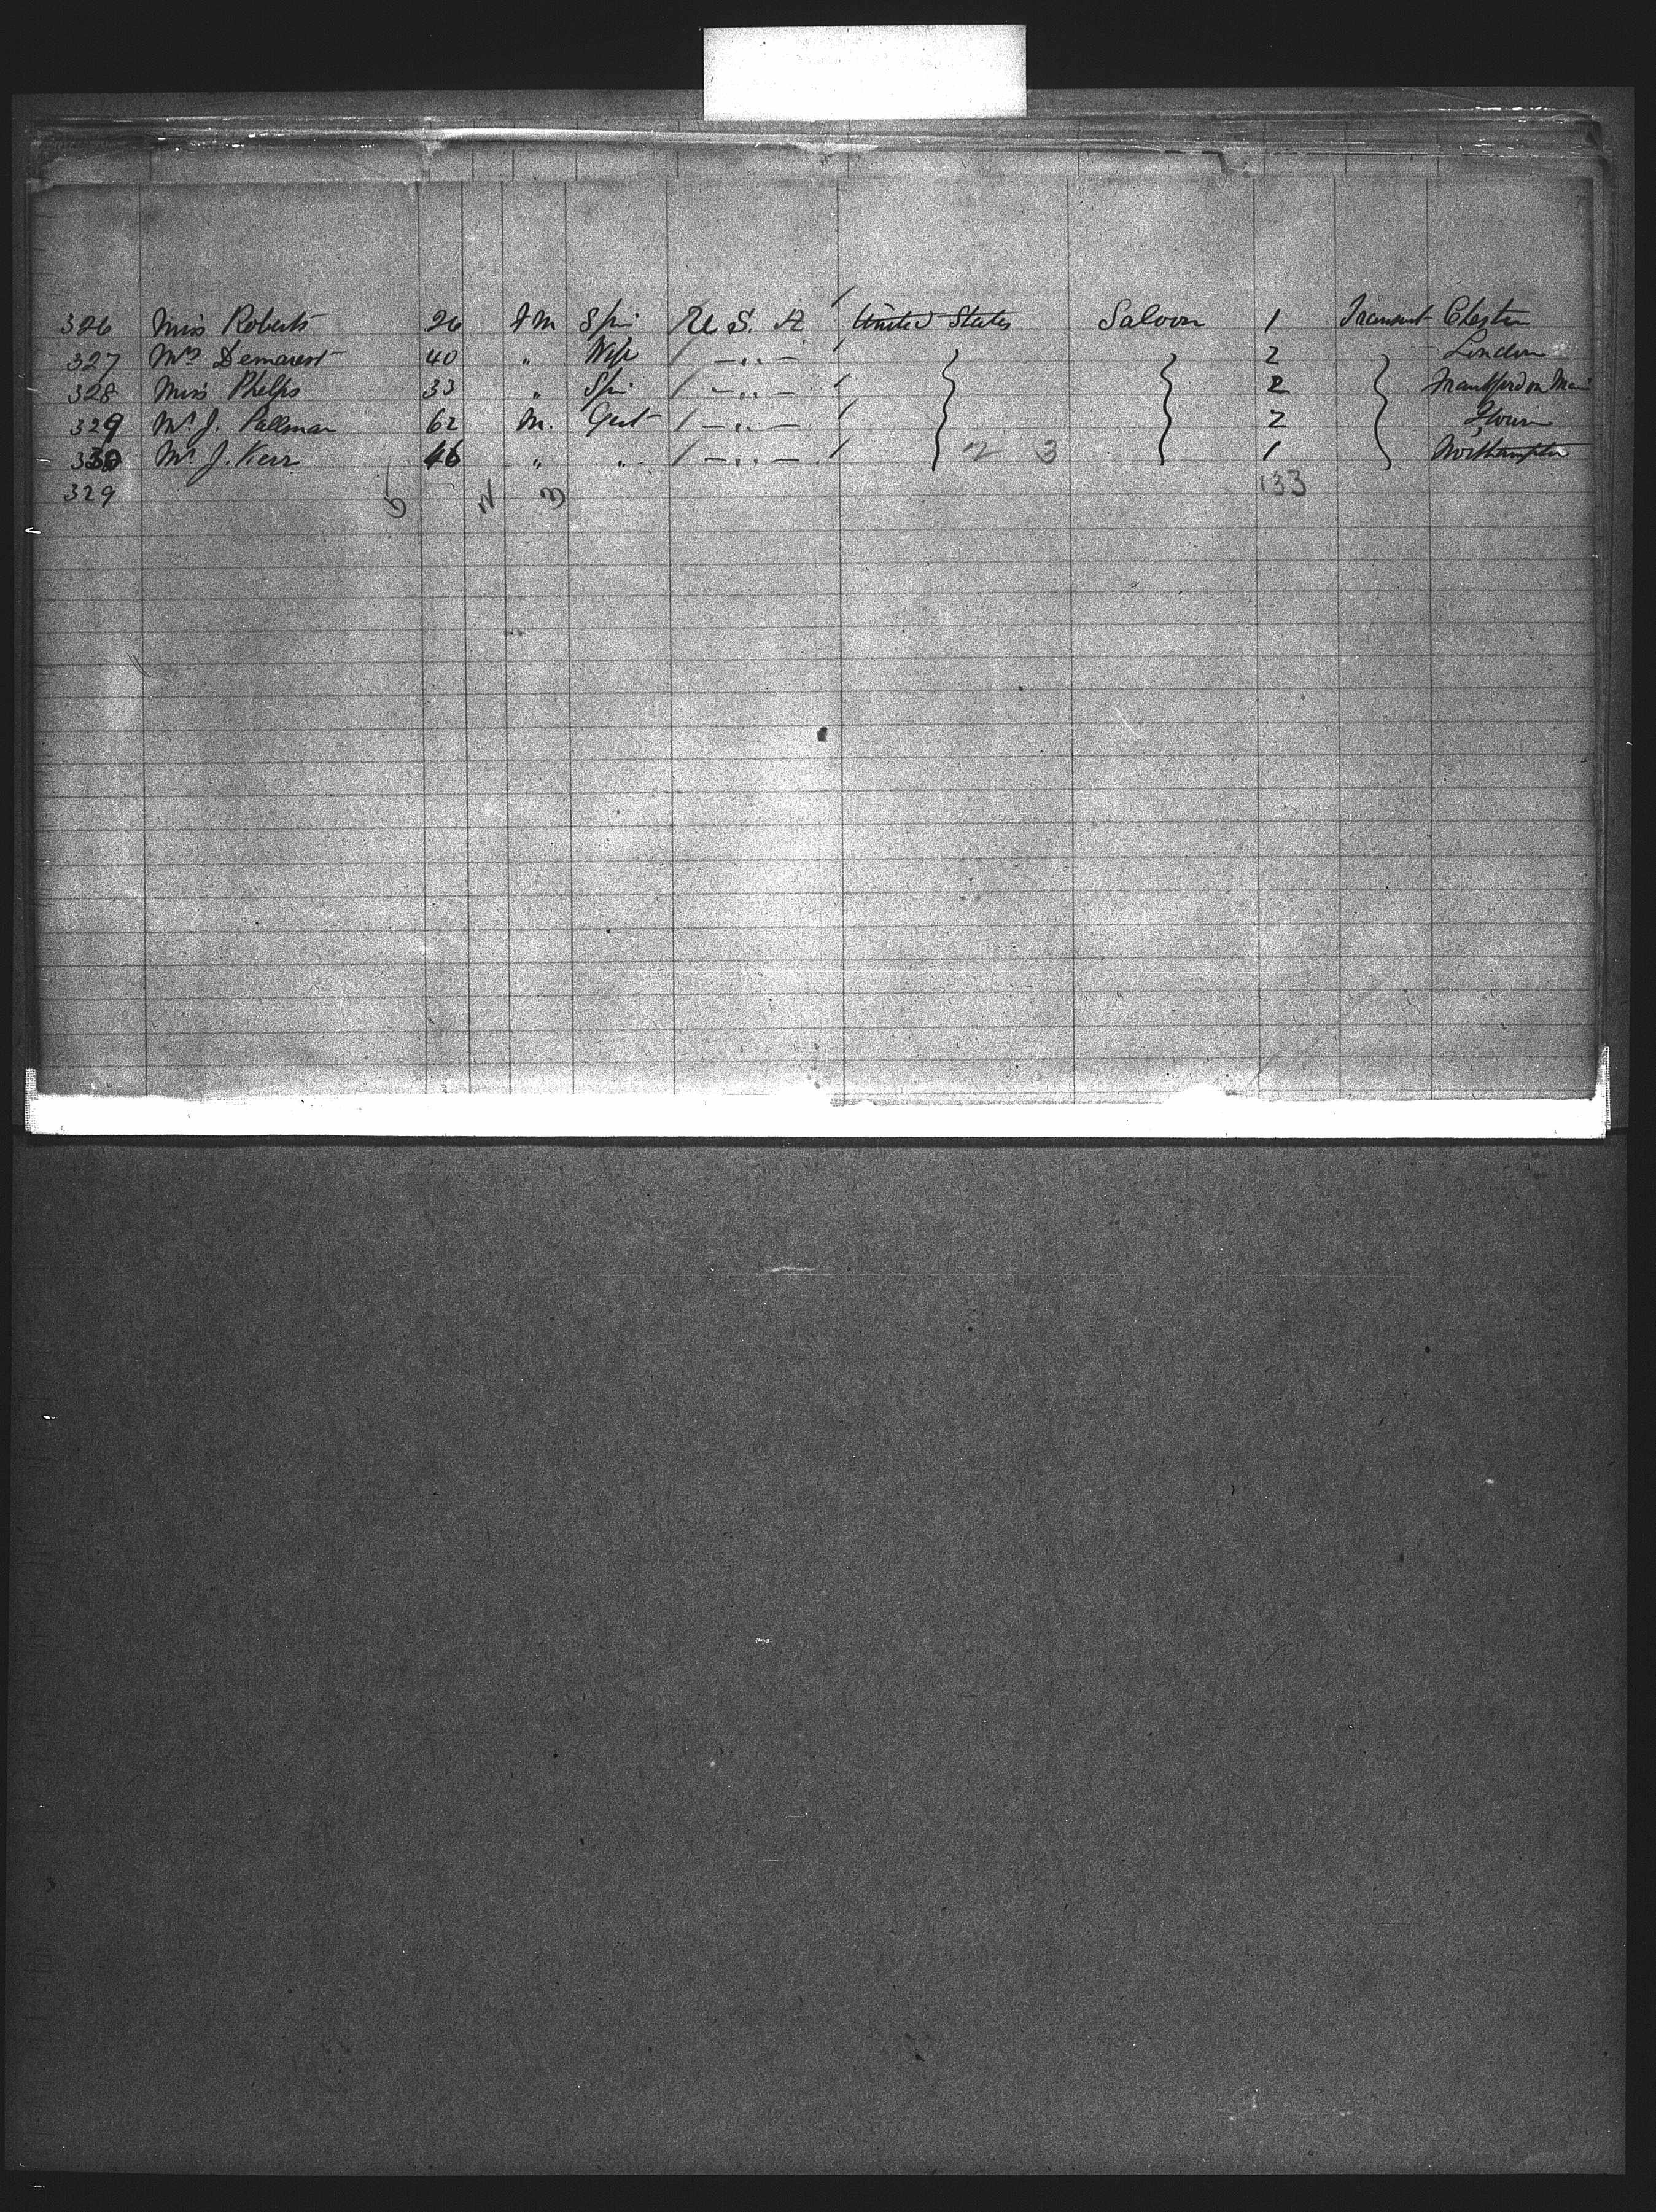 326 Miss Roberts 26 Fm Spin U.S.A United States Saloon 1 Transit Chester
327 Mrs Demarest 40 " Wife — " — 2 London
328 Miss Phelps 33 " Spin — " — 2 Frankford on Main
329 Mr J. Pallman 62 M. Gent — " — 2
330 Mr J. Kerr 46 " " — " — 2 3 1 Northampton
329 5 2 3 133